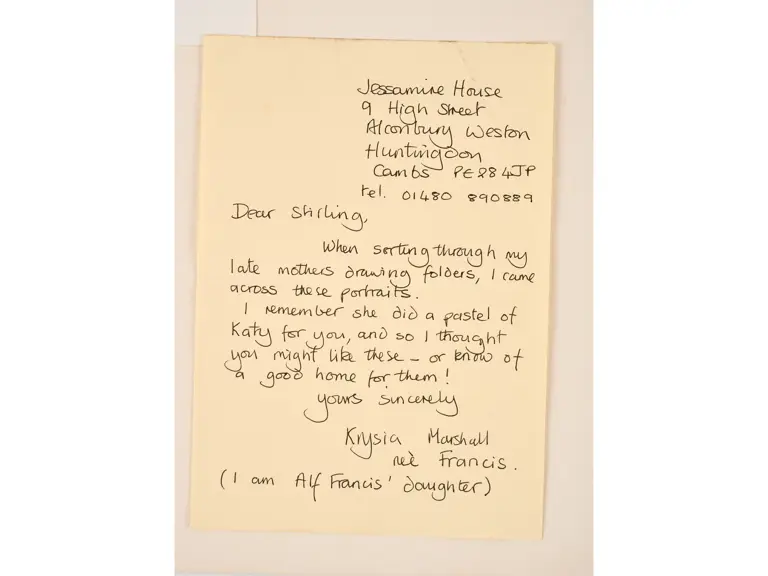 Jessamine House
9 High Street
Alconbury Weston
Huntingdon
Cambs PE28 4JP
tel. 01480 890889
Dear Stirling,
When sorting through my
late mothers drawing folders, I came
across these portraits.
I remember she did a pastel of
Katy for you, and so I thought
you might like these - or know of
a good home for them!
yours sincerely
Krysia Marshall
neè Francis.
(I am Alf Francis' daughter)